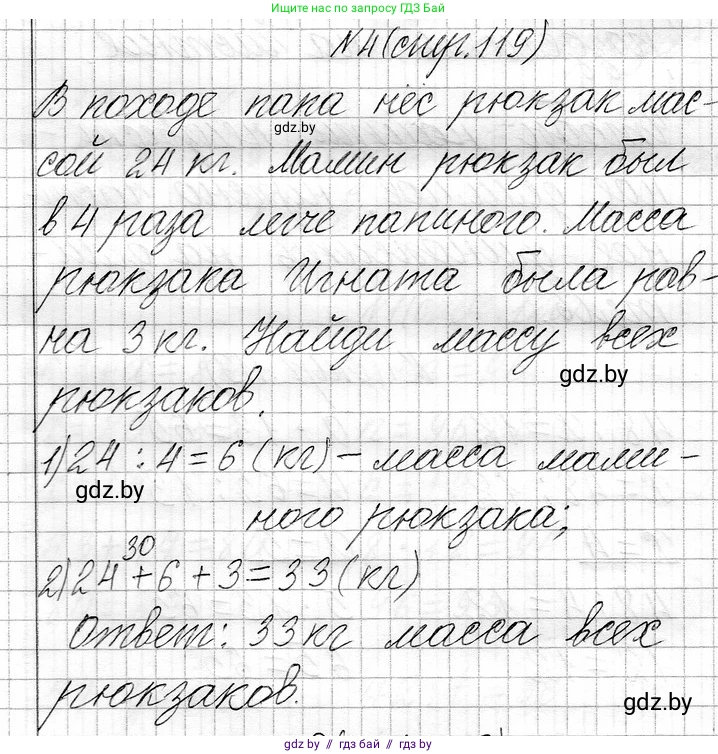 Ищите нас по запросу ГДЗ БАЙ
N4(стр.119)
В походе папа нёс рюкзак мас-
gdz.by
сой 24 кг. Мамин рюкзак был
в 4 раза легче папиного. Масса
рюкзака Игната была рав-
на 3 кг. Найди массу всех
gdz.by
рюкзаков.
1) 24 : 4 = 6 (кг) – масса мами-
gdz.by
ного рюкзака;
30
2) 24 + 6 + 3 = 33 (кг)
Ответ: 33 кг масса всех
рюкзаков.
gdz.by
gdz.by // гдз бай // gdz.by